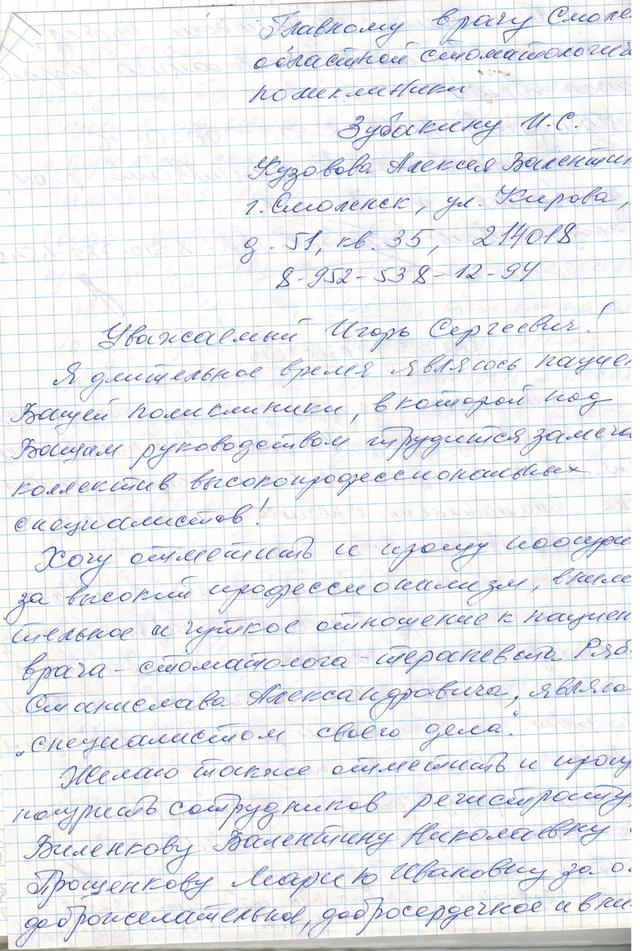 Главному врачу Смоле
областной стоматологиче
поликлиники
Зубакину И.С.
Кузовова Алексея Валентин
г. Смоленск, ул. Кирова,
д. 51, кв. 35, 214018
8-952-538-12-94
Уважаемый Игорь Сергеевич!
Я длительное время являюсь пациен
Вашей поликлиники, в которой под
Вашим руководством трудится замеча
коллектив высокопрофессиональных
специалистов!
Хочу отметить и прошу поощри
за высокий профессионализм, внима
тельное и чуткое отношение к пациен
врача-стоматолога-терапевта Ряб
Станислава Александровича, являю
„специалистом своего дела".
Желаю также отметить и прошу
поощрить сотрудников регистрату
Виленкову Валентину Николаевну
Прощенкову Марию Ивановну за о
доброжелательное, добросердечное и вни